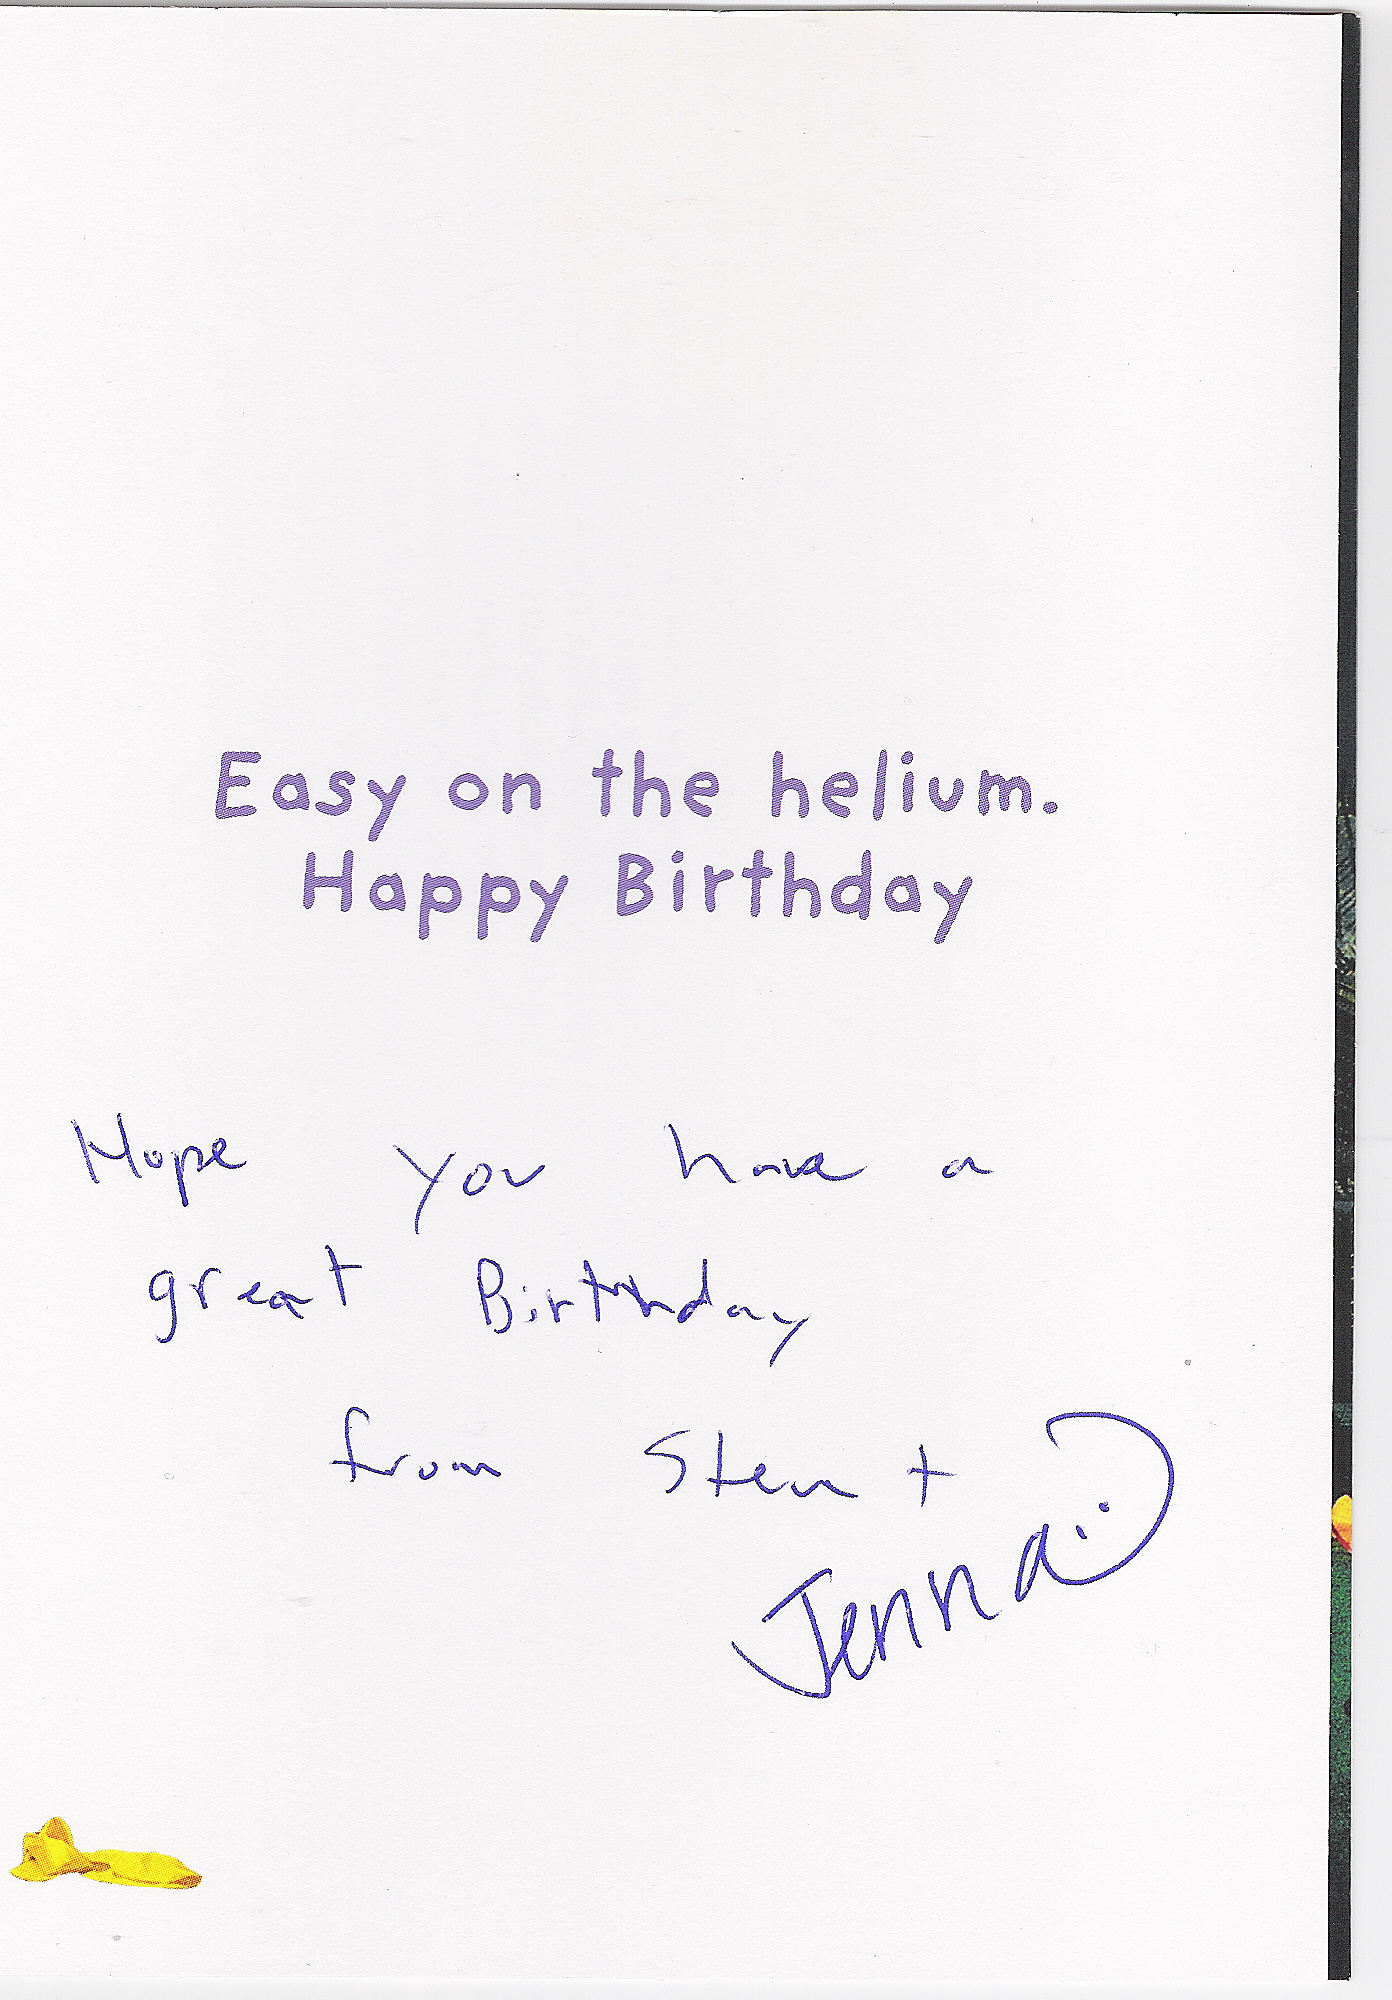 Easy on the helium.
Happy Birthday
Hope you have a
great Birthday
from +
Jenna :)